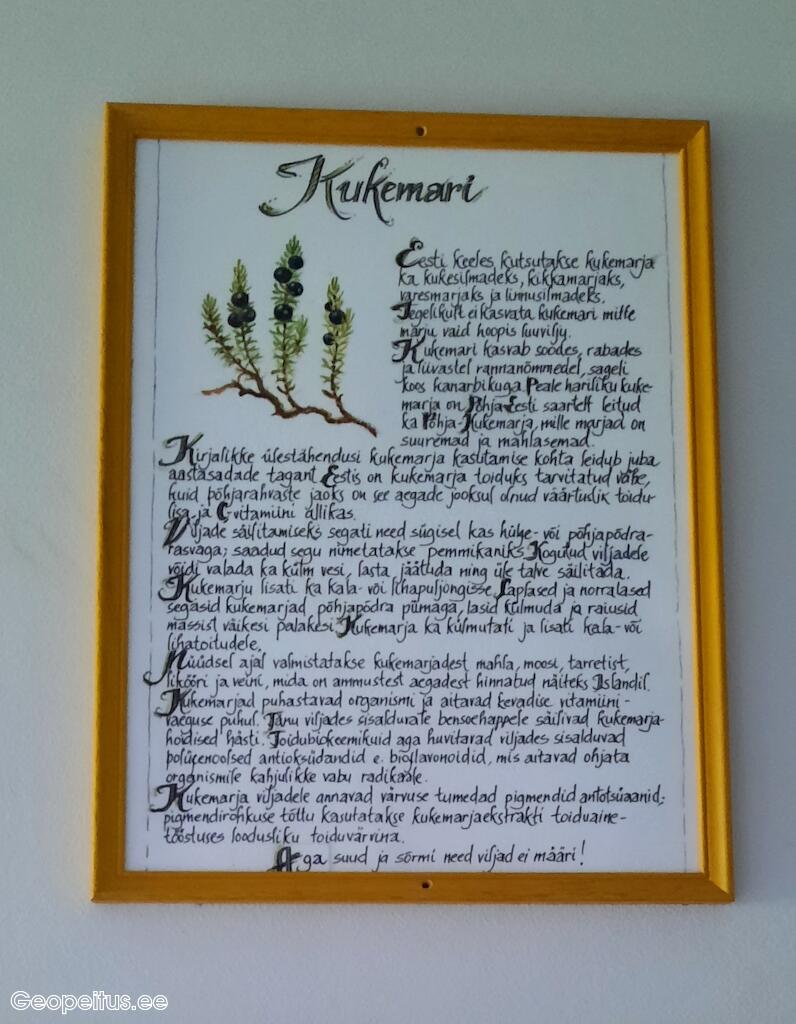 Kukemari
Eesti keeles kutsutakse kukemarja
ka kukesilmadeks, kikkamarjaks,
varesmarjaks ja linnusilmadeks.
Tegelikult ei kasvata kukemari mitte
marju vaid hoopis luuvilju.
Kukemari kasvab soodes, rabades
ja liivastel rannanõmmedel, sageli
koos kanarbikuga. Peale hariliku kuke-
marja on Põhja-Eesti saartelt leitud
ka Põhja-Kukemarja, mille marjad on
suuremad ja mahlasemad.
Kirjalikke ülestähendusi kukemarja kasutamise kohta leidub juba
aastasadade tagant. Eestis on kukemarja toiduks tarvitatud vähe,
kuid põhjarahvaste jaoks on see aegade jooksul olnud väärtuslik toidu-
lisa ja C-vitamiini allikas.
Viljade säilitamiseks segati need sügisel kas hülge- või põhjapõdra-
rasvaga; saadud segu nimetatakse pemmikaniks. Kogutud viljadele
võidi valada ka külm vesi, lasta jäätuda ning üle talve säilitada.
Kukemarju lisati ka kala- või lihapuljongisse. Laplased ja norralased
segasid kukemarjad põhjapõdra piimaga, lasid külmuda ja raiusid
massist väikesi palakesi. Kukemarja ka külmutati ja lisati kala- või
lihatoitudele.
Nüüdsel ajal valmistatakse kukemarjadest mahla, moosi, tarretist,
likööri ja veini, mida on ammustest aegadest hinnatud näiteks Islandil.
Kukemarjad puhastavad organismi ja aitavad kevadise vitamiini-
vaeguse puhul. Tänu viljades sisalduvale bensoehappele säilivad kukemarja-
hoidised hästi. Toidubiokeemikuid aga huvitavad viljades sisalduvad
polüfenoolsed antioksüdandid e. bioflavonoidid, mis aitavad ohjata
organismile kahjulikke vabu radikaale.
Kukemarja viljadele annavad värvuse tumedad pigmendid antotsüaanid;
pigmendirohkuse tõttu kasutatakse kukemarjaekstrakti toiduaine-
tööstuses loodusliku toiduvärvina.
Aga suud ja sõrmi need viljad ei määri!
Geopeitus.ee